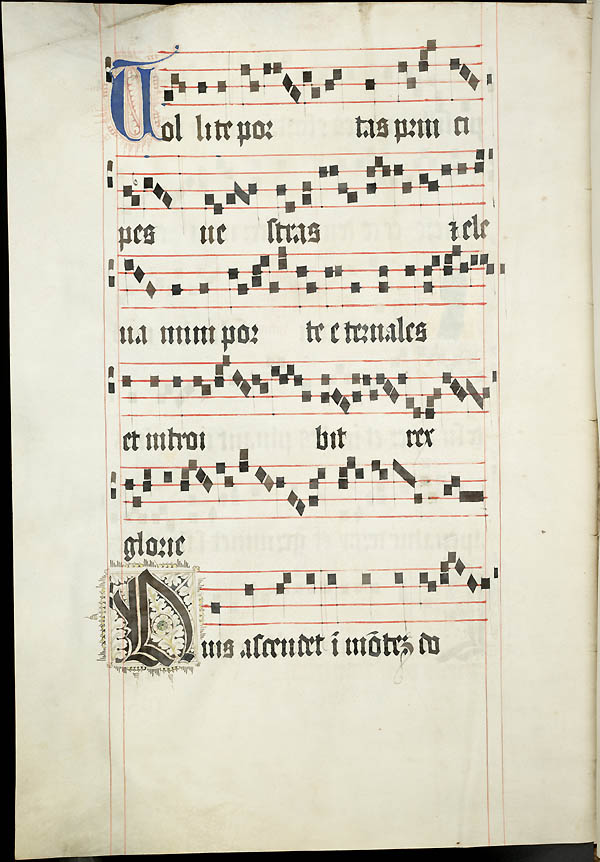 Tol lite por tas prin ci
pes ue stras ⁊ ele
ua mini por te e ternales
et introi bit rex
glorie
Quis ascendet ī mōtez do